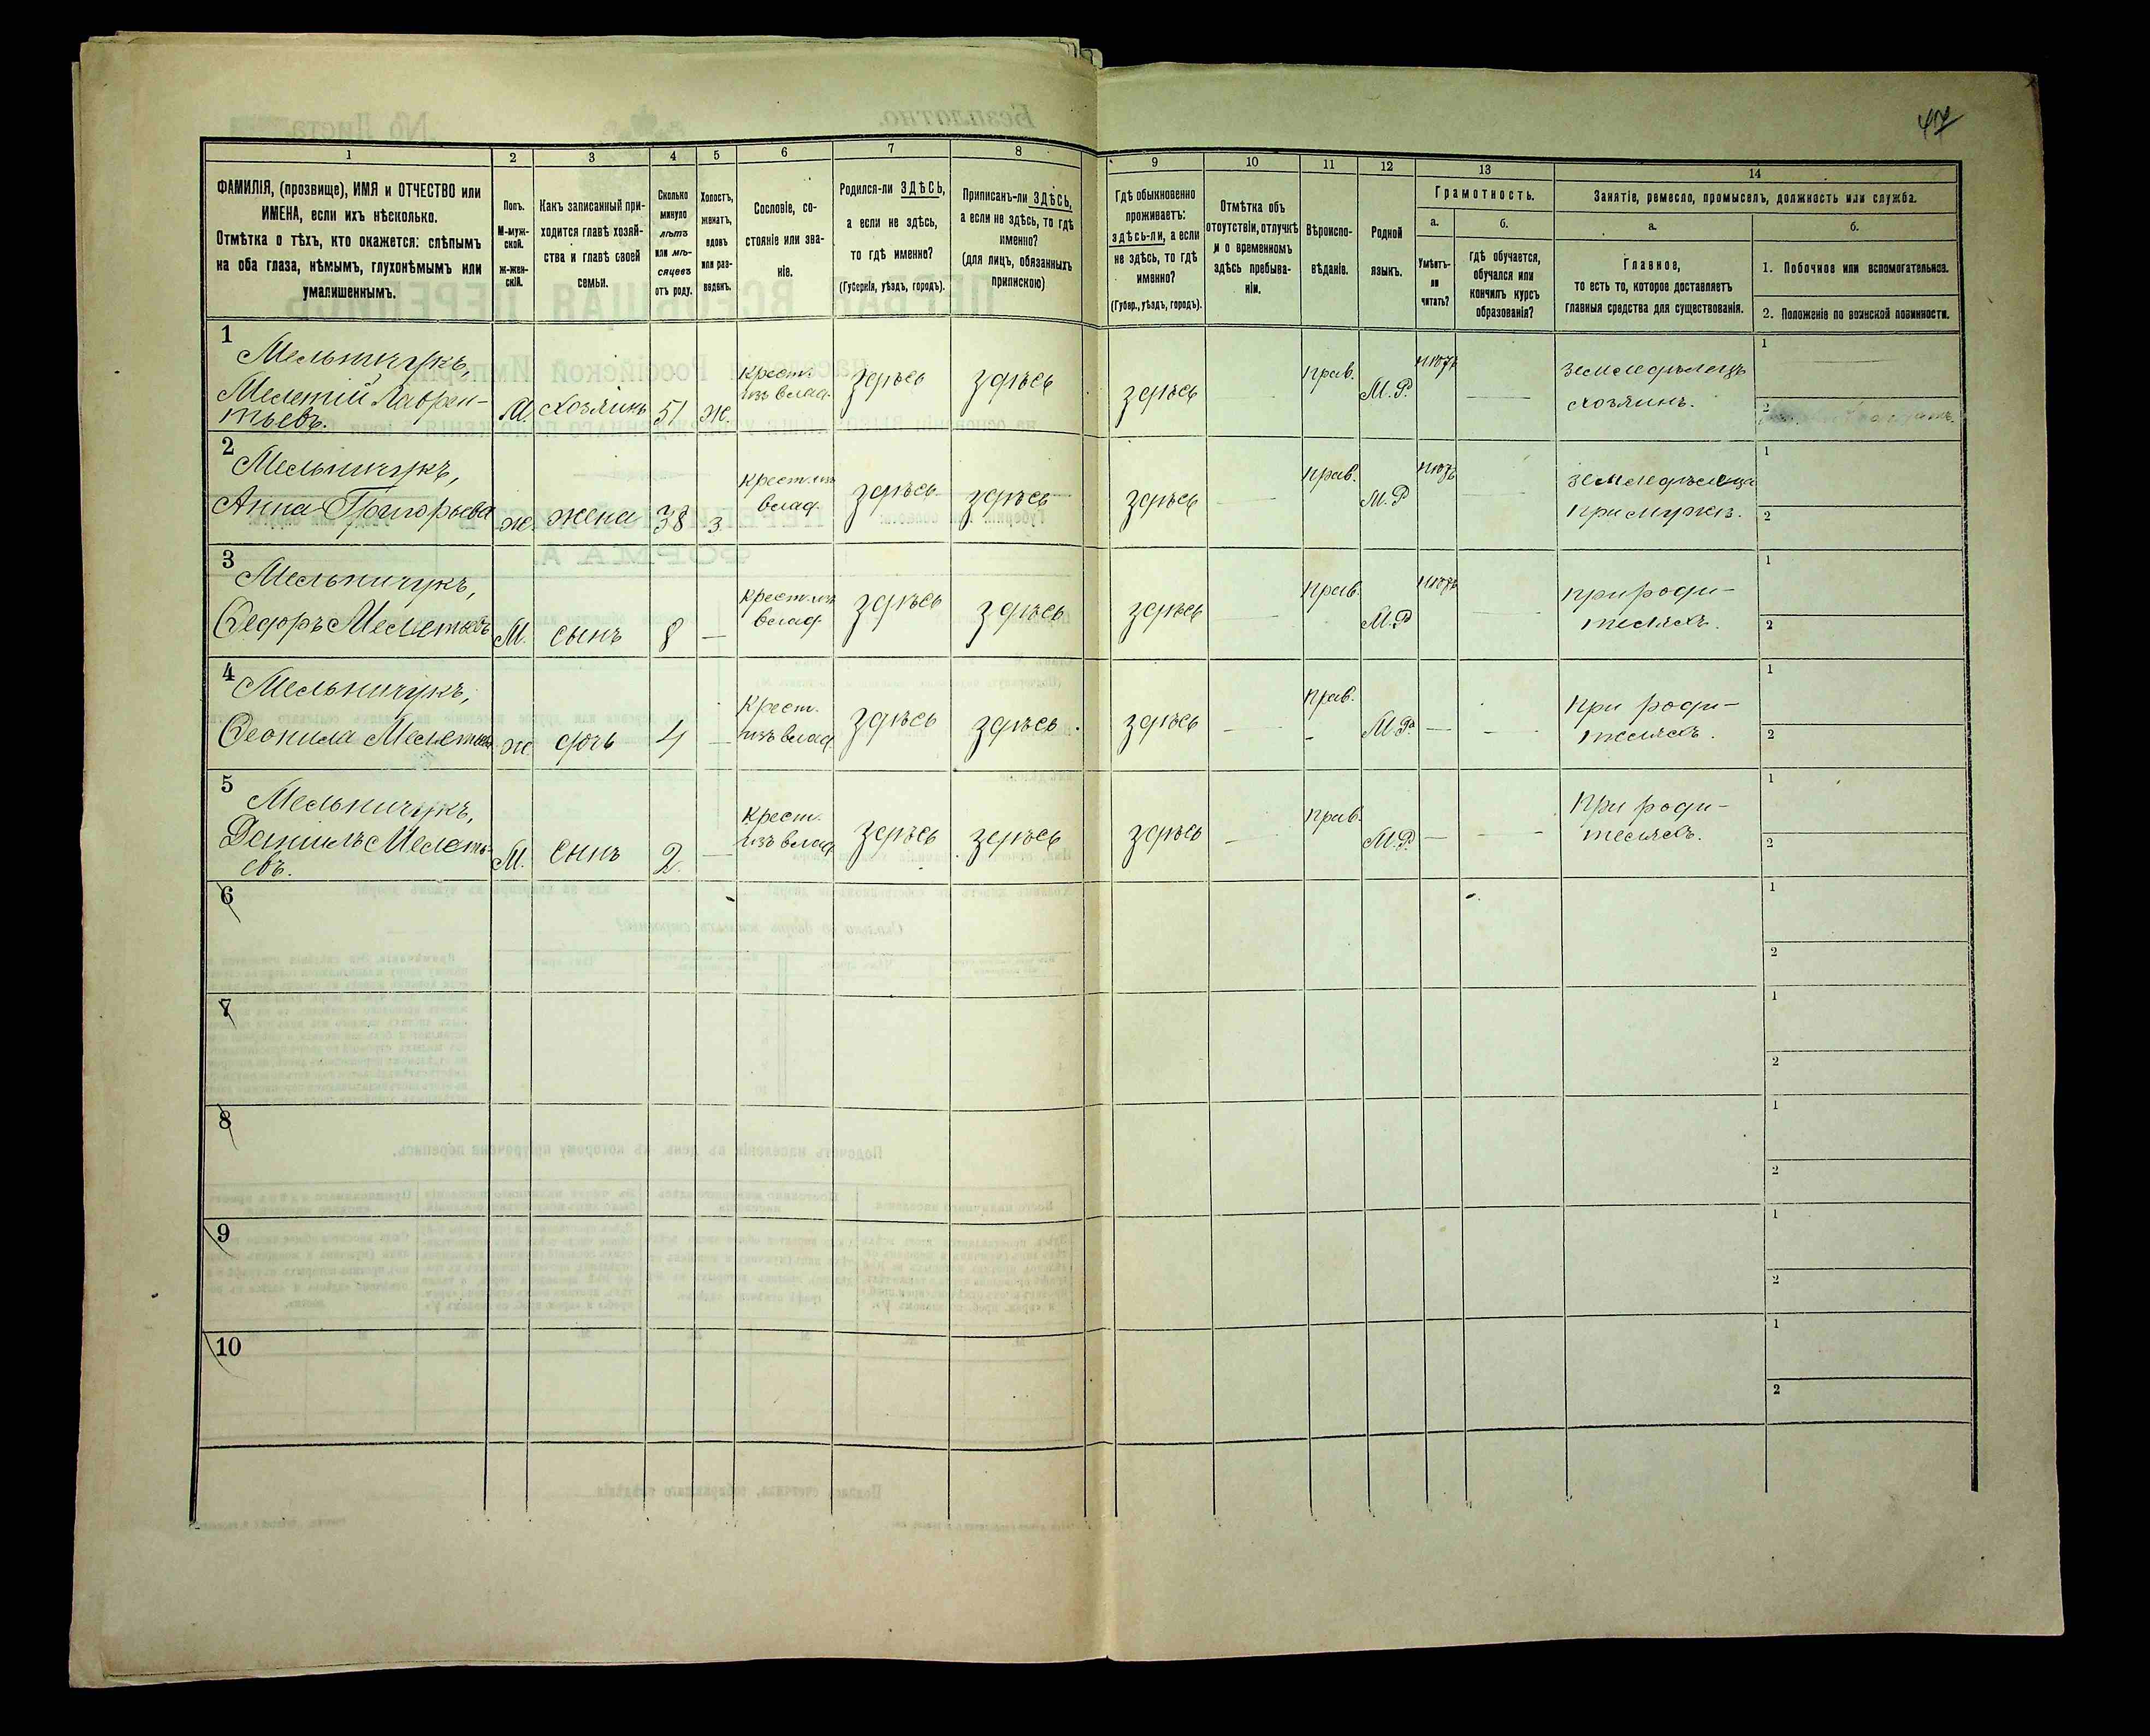 47
1
2
3
4
5
6
7
8
9
10
11
12
13
14
ФАМИЛІЯ, (прозвище), ИМЯ и ОТЧЕСТВО или
ИМЕНА, если ихъ нѣсколько.
Отмѣтка о тѣхъ, кто окажется: слѣпымъ
на оба глаза, нѣмымъ, глухонѣмымъ или
умалишеннымъ.
Полъ.
М-муж-
ской.
ж-жен-
скій.
Какъ записанный при-
ходится главѣ хозяй-
ства и главѣ своей
семьи.
Сколько
минуло
лѣтъ
или мѣ-
сяцевъ
отъ роду.
Холостъ,
женатъ,
вдовъ
или раз-
веденъ.
Сословіе, со-
стояніе или зва-
ніе.
Родился-ли ЗДѢСЬ,
а если не здѣсь,
то гдѣ именно?
(Губернія, уѣздъ, городъ).
Приписанъ-ли ЗДѢСЬ,
а если не здѣсь, то гдѣ
именно?
(для лицъ, обязанныхъ
припискою)
Гдѣ обыкновенно
проживаетъ:
здѣсь-ли, а если
не здѣсь, то гдѣ
именно?
(Губер., уѣздъ, городъ).
Отмѣтка объ
отсутствіи, отлучкѣ
и о временномъ
здѣсь пребыва-
ніи.
Вѣроиспо-
вѣданіе.
Родной
языкъ.
Грамотность.
а.
Умѣетъ-
ли
читать?
б.
гдѣ обучается,
обучался или
кончилъ курсъ
образованія?
Занятіе, ремесло, промыселъ, должность или служба.
а.
Главное,
то есть то, которое доставляетъ
главныя средства для существованія.
б.
1. Побочное или вспомогательное.
2. Положеніе по воинской повинности.
1
Мельничукъ,
Мелетій Лаврен-
тьевъ.
М.
хозяинъ
51
ж.
крест.
изъ влад.
здѣсь
здѣсь
здѣсь
прав.
М.Р.
нѣтъ
земледѣлецъ
хозяинъ.
1
2
2
Мельничукъ,
Анна Григорьева
ж.
жена
38
з.
крест. изъ
влад.
здѣсь
здѣсь
здѣсь
прав.
М.Р
нѣтъ
земледѣлица
при мужѣ.
1
2
3
Мельничукъ,
Ѳедоръ Мелетьевъ
М.
сынъ
8
—
крест. изъ
влад.
здѣсь
здѣсь
здѣсь
прав.
М.Р
нѣтъ
при роди-
теляхъ.
1
2
4
Мельничукъ,
Ѳеонила Мелетьева
ж.
дочь
4
—
крест.
изъ влад.
здѣсь
здѣсь.
здѣсь
прав.
М.Р.
—
при роди-
теляхъ.
1
2
5
Мельничукъ,
Даніилъ Мелеть-
евъ.
М.
сынъ
2.
—
крест.
изъ влад
здѣсь
здѣсь
здѣсь
прав.
М.Р.
—
при роди-
теляхъ.
1
2
6
1
2
7
1
2
8
1
2
9
1
2
10
1
2